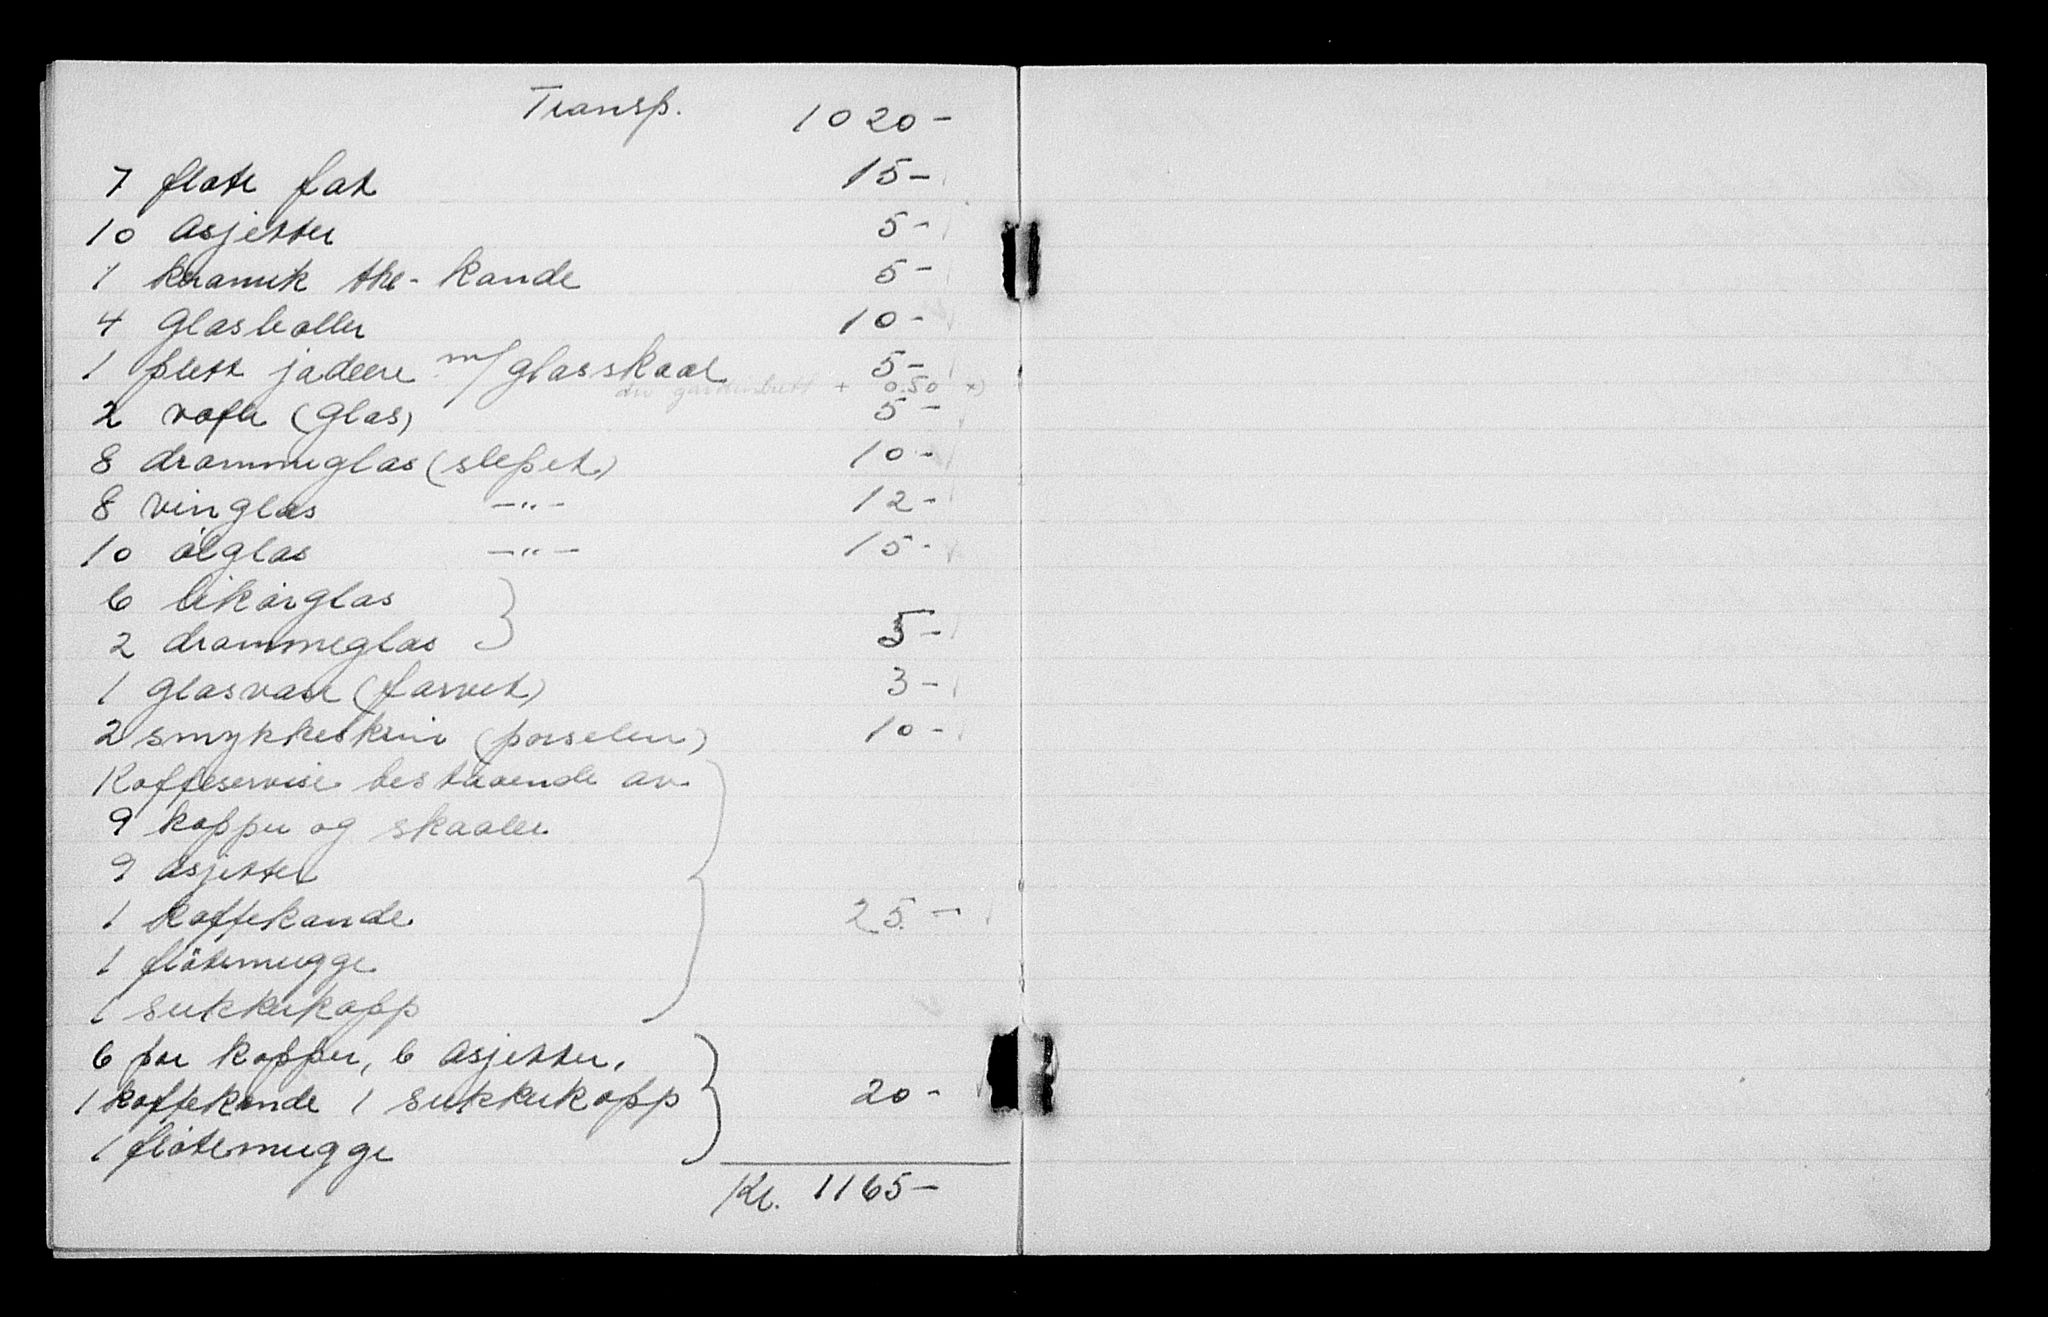 Transp. 1020-
7 flate fat 15-
10 asjetter 5-
1 keramik the-kande 5-
4 Glasboller 10-
1 plett jadeere m/glasskaal 5-
+ 0.50 x)
2 vafle (Glas) 5-
8 drammeglas (slepet) 10-
8 vinglas -"- 12-
10 ølglas -"- 15-
6 likørglas
2 drammeglas 5-
1 Glasvase (farvet) 3-
2 smykkeskrin (porselen) 10-
Kaffeservise bestaaende av
9 kopper og skaaler
9 asjetter
1 kaffekande 25.-
1 fløtemugge
1 sukkerkopp
6 par kopper, 6 asjetter,
1 kaffekande 1 sukkerkopp 20-
1 fløtemugge
Kr. 1165-